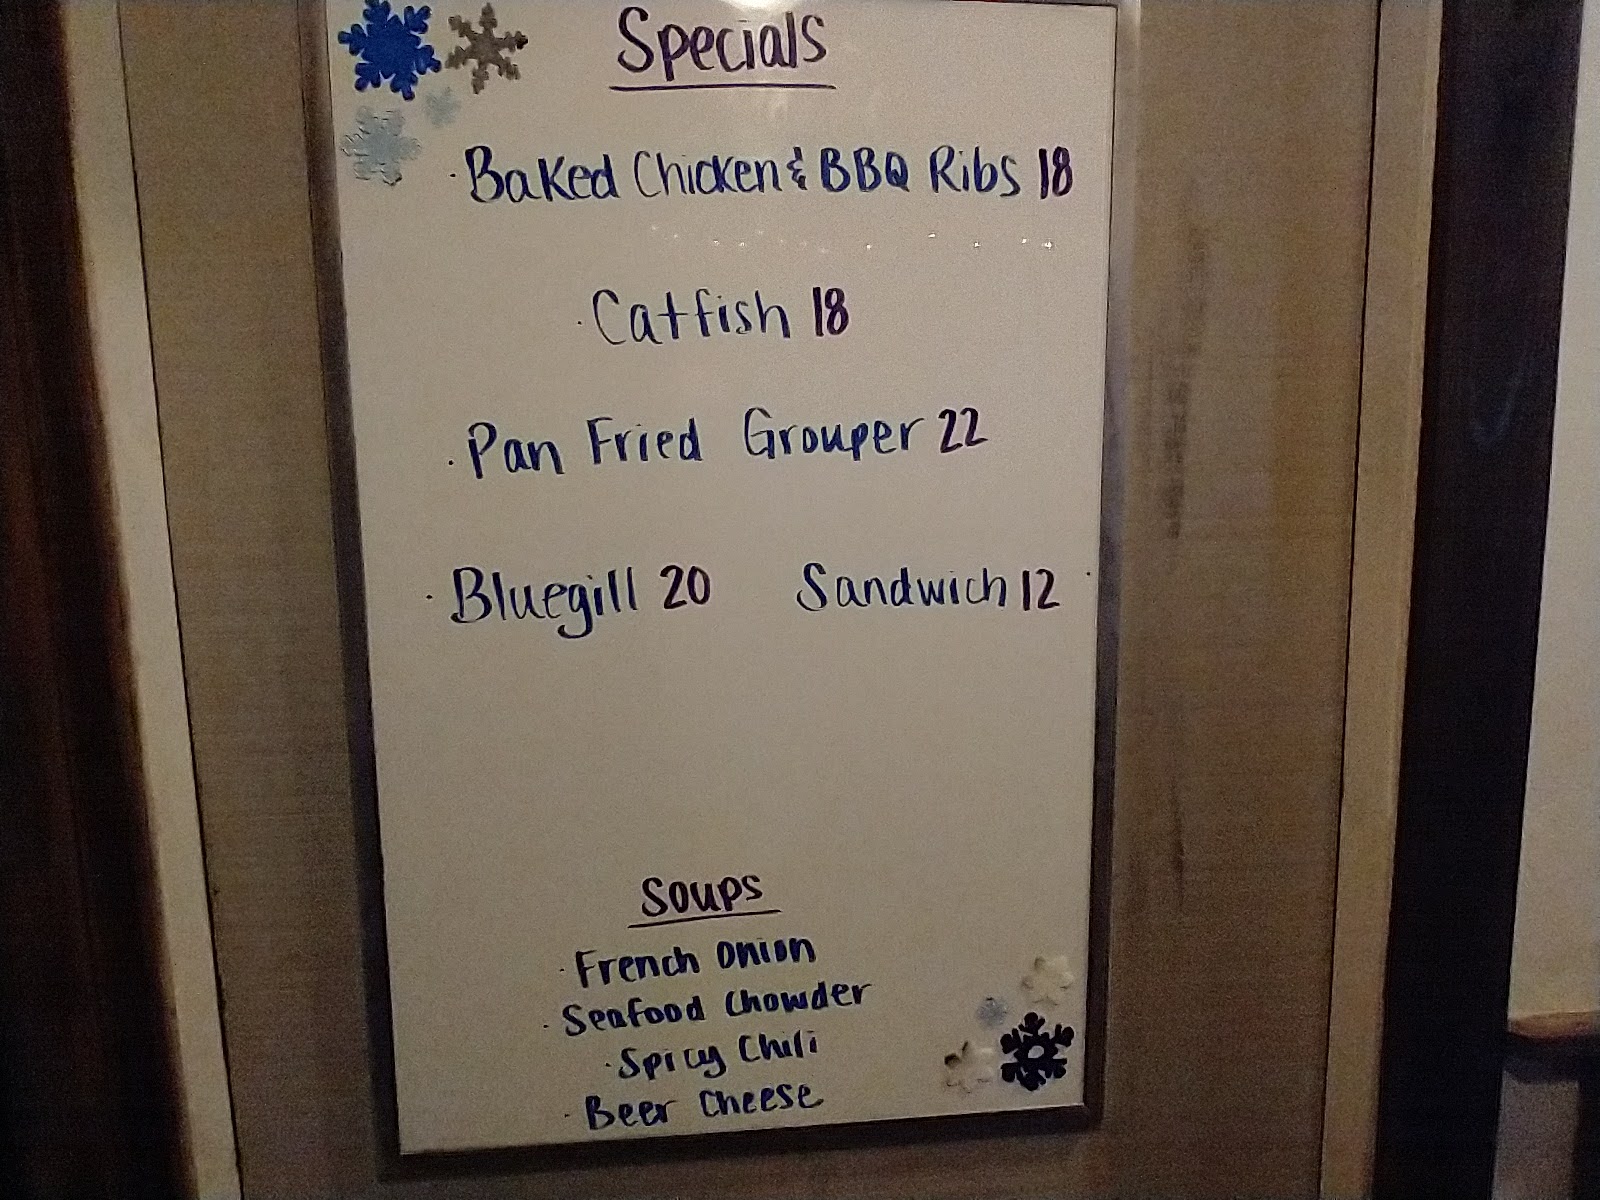 Specials
· Baked Chicken & BBQ Ribs 18
· Catfish 18
· Pan Fried Grouper 22
· Bluegill 20 Sandwich 12
Soups
· French Onion
· Seafood Chowder
· Spicy Chili
· Beer Cheese